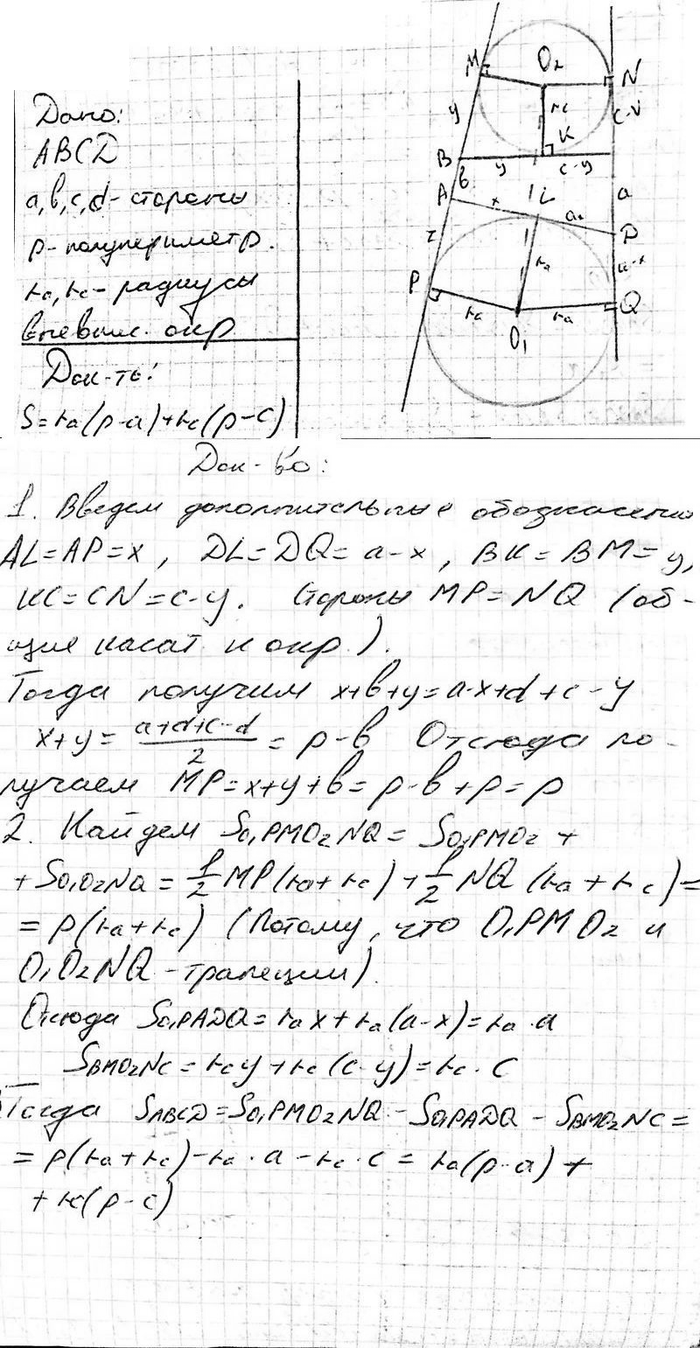 Дано:
ABCD
a,b,c,d - стороны
p - полупериметр.
ra, rc - радиусы
вневпис. окр
Док-ть:
S = ra(p-a) + rc(p-c)
M O2 N
y rc c-y
B y K c-y
b
A x L a-x D a
x ra a-x
P ra O1 ra Q
Док-во:
1. Введем дополнительные обозначения
AL=AP=x, DL=DQ=a-x, BK=BM=y,
KC=CN=c-y. Стороны MP=NQ (об-
щие касат к окр).
Тогда получим x+b+y=a-x+d+c-y
x+y= (a+d+c-d)/2 = p-b Отсюда по-
лучаем MP=x+y+b=p-b+p=p
2. Найдем SO1PMO2NQ = SO1PMO2 +
+ SO1O2NQ = 1/2 MP(ra+rc) + 1/2 NQ (ra+rc) =
= p(ra+rc) (Потому, что O1PMO2 и
O1O2NQ - трапеции).
Отсюда SO1PADQ = ra x + ra(a-x) = ra · a
SBMO2NC = rc y + rc(c-y) = rc · c
Тогда SABCD = SO1PMO2NQ - SO1PADQ - SBMO2NC =
= p(ra+rc) - ra · a - rc · c = ra(p-a) +
+ rc(p-c)